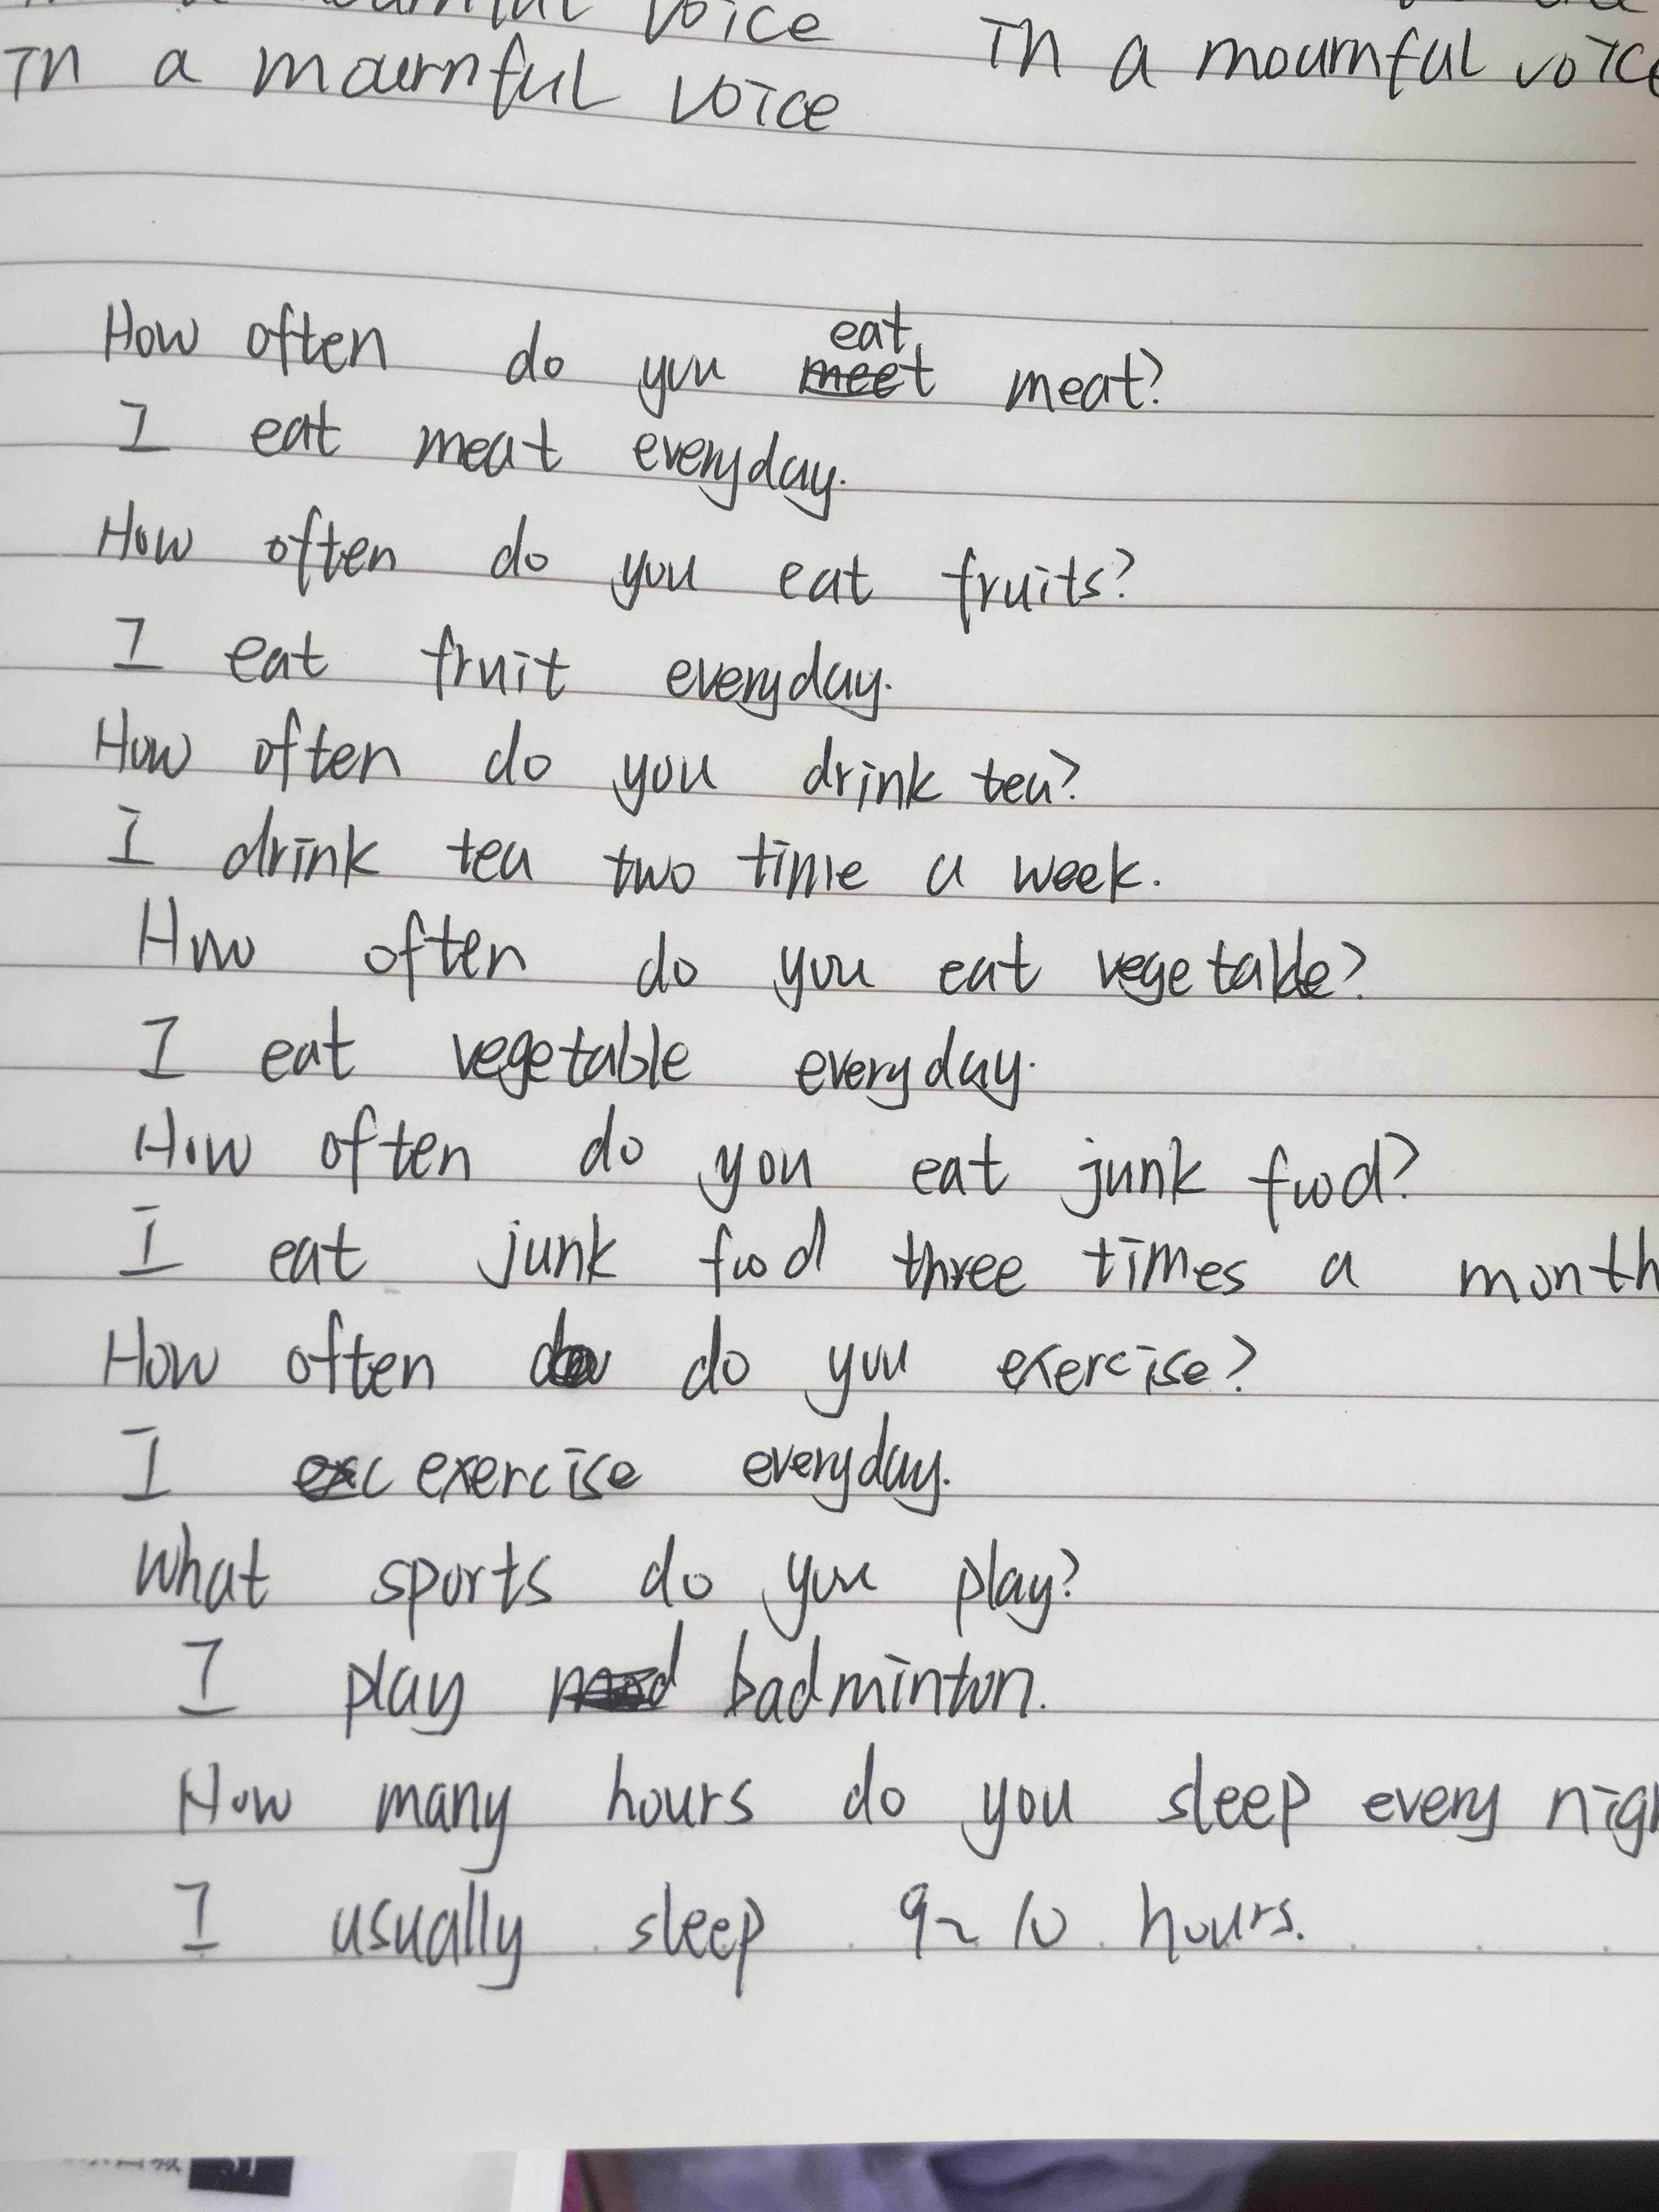 mournful voice
In a mournful voice In a mournful voice
How often do you eat meat?
I eat meat everyday.
How often do you eat fruits?
I eat fruit everyday.
How often do you drink tea?
I drink tea two time a week.
How often do you eat vegetable?
I eat vegetable everyday.
How often do you eat junk food?
I eat junk food three times a month
How often do you exercise?
I exercise everyday.
What sports do you play?
I play badminton.
How many hours do you sleep every nigh
I usually sleep 9~10 hours.